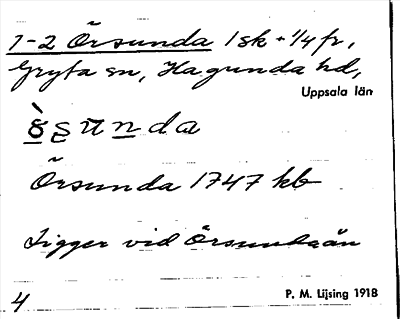 1-2 Örsunda 1 sk + 1/4 fr,
Gryta sn, Hagunda hd,
Uppsala län
Örsunda 1747 kb
Ligger vid Örsundaån
4
P. M. Lijsing 1918